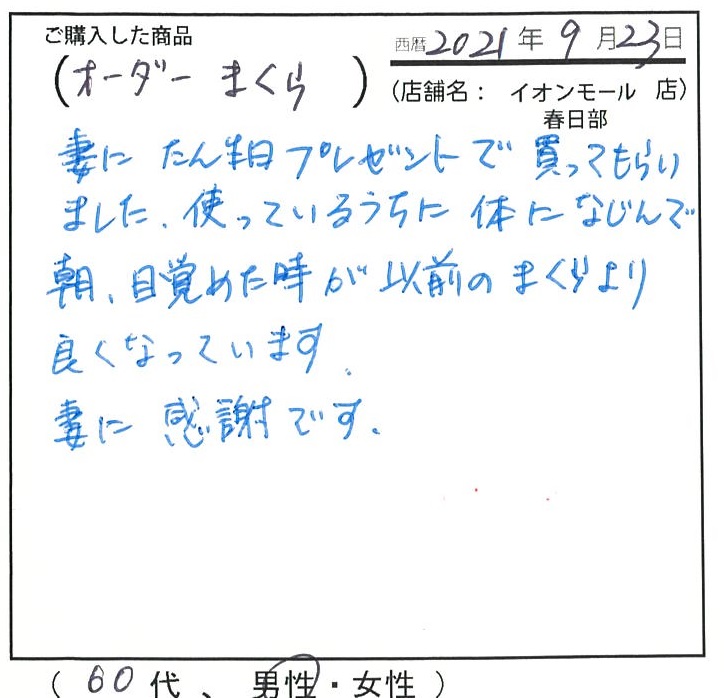 ご購入した商品
西暦2021年9月23日
(オーダーまくら)
(店舗名： イオンモール 店)
春日部
妻に たん生日プレゼントで 買ってもらい
ました、使っているうちに 体に なじんで
朝、目覚めた時が以前のまくらより
良くなっています、
妻に 感謝です。
( 60代、男性・女性 )